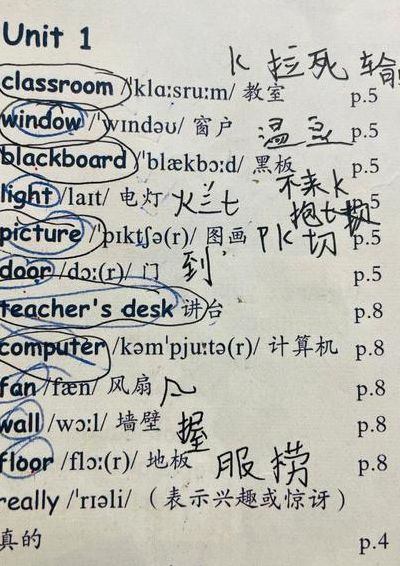 Unit 1
K 拉死 车俞
classroom /ˈklɑːsruːm/ 教室 p.5
window /ˈwɪndəʊ/ 窗户 温 p.5
blackboard /ˈblækbɔːd/ 黑板 p.5
不来K
light /laɪt/ 电灯 火兰七 p.5
抱七
picture /ˈpɪktʃə(r)/ 图画 PK 切 p.5
door /dɔː(r)/ 门 到 p.5
teacher's desk 讲台 p.8
computer /kəmˈpjuːtə(r)/ 计算机 p.8
fan /fæn/ 风扇 p.8
wall /wɔːl/ 墙壁 握 p.8
floor /flɔː(r)/ 地板 服捞 p.8
really /ˈrɪəli/ （表示兴趣或惊讶）
真的 p.4